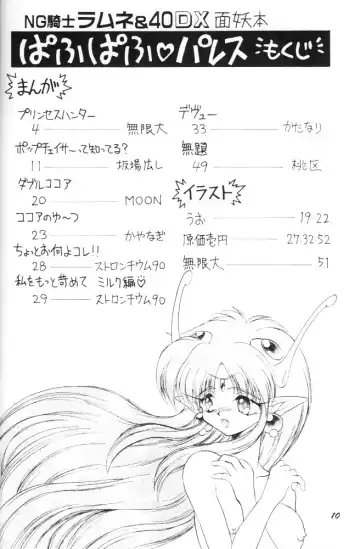 NG騎士ラムネ&40DX面妖本
ぱふぱふ♡パレス もくじ
まんが
プリンセスハンター
4 ── 無限大
ポップチェイサーって知ってる?
11 ── 坂場広し
ダブルココア
20 ── MOON
ココアのゆ〜つ
23 ── かやなぎ
ちょっとお何よコレ!!
28 ── ストロンチウム90
私をもっと苛めて ミルク編♡
29 ── ストロンチウム90
デヴュー
33 ── かたなり
無題
49 ── 桃区
イラスト
うお ── 19・22
原価壱円 ── 27.32.52
無限大 ── 51
10